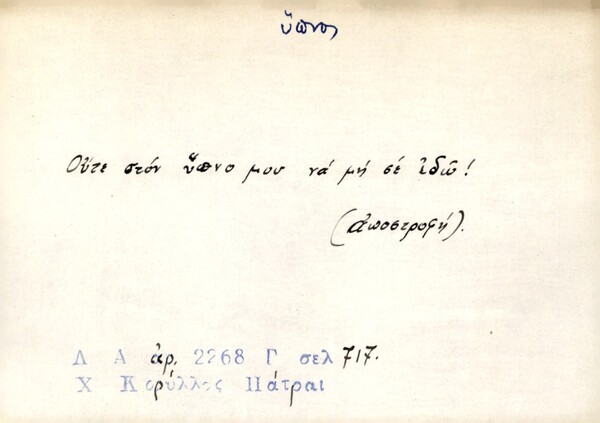 ὕπνος
Οὔτε στόν ὕπνο μου νά μή σέ ἰδῶ!
(ἀποστροφή).
Λ Α ἀρ. 2268 Γ σελ 717.
Χ Κορύλλος Πάτραι